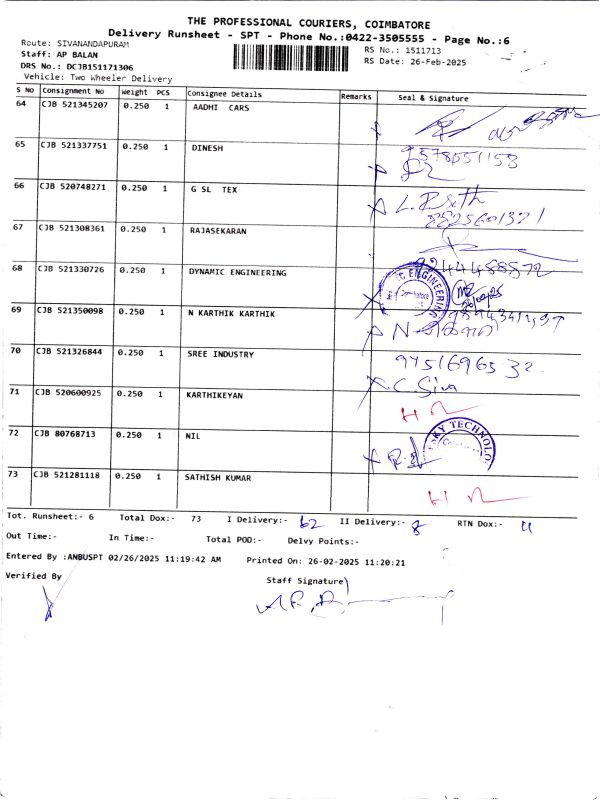 THE PROFESSIONAL COURIERS, COIMBATORE
Delivery Runsheet - SPT - Phone No.:0422-3505555 - Page No.:6
Route: SIVANANDAPURAM
RS No.: 1511713
Staff: AP BALAN
RS Date: 26-Feb-2025
DRS No.: DCJB151171306
Vehicle: Two Wheeler Delivery
S No Consignment No Weight PCS Consignee Details Remarks Seal & Signature
64 CJB 521345207 0.250 1 AADHI CARS
65 CJB 521337751 0.250 1 DINESH
66 CJB 520748271 0.250 1 G SL TEX
67 CJB 521308361 0.250 1 RAJASEKARAN
68 CJB 521330726 0.250 1 DYNAMIC ENGINEERING
69 CJB 521350098 0.250 1 N KARTHIK KARTHIK
70 CJB 521326844 0.250 1 SREE INDUSTRY
9751696532
C. Siva
71 CJB 520600925 0.250 1 KARTHIKEYAN
72 CJB 80768713 0.250 1 NIL
73 CJB 521281118 0.250 1 SATHISH KUMAR
Tot. Runsheet:- 6 Total Dox:- 73 I Delivery:- 62 II Delivery:- 8 RTN Dox:-
Out Time:- In Time:- Total POD:- Delvy Points:-
Entered By :ANBUSPT 02/26/2025 11:19:42 AM Printed On: 26-02-2025 11:20:21
Verified By Staff Signature